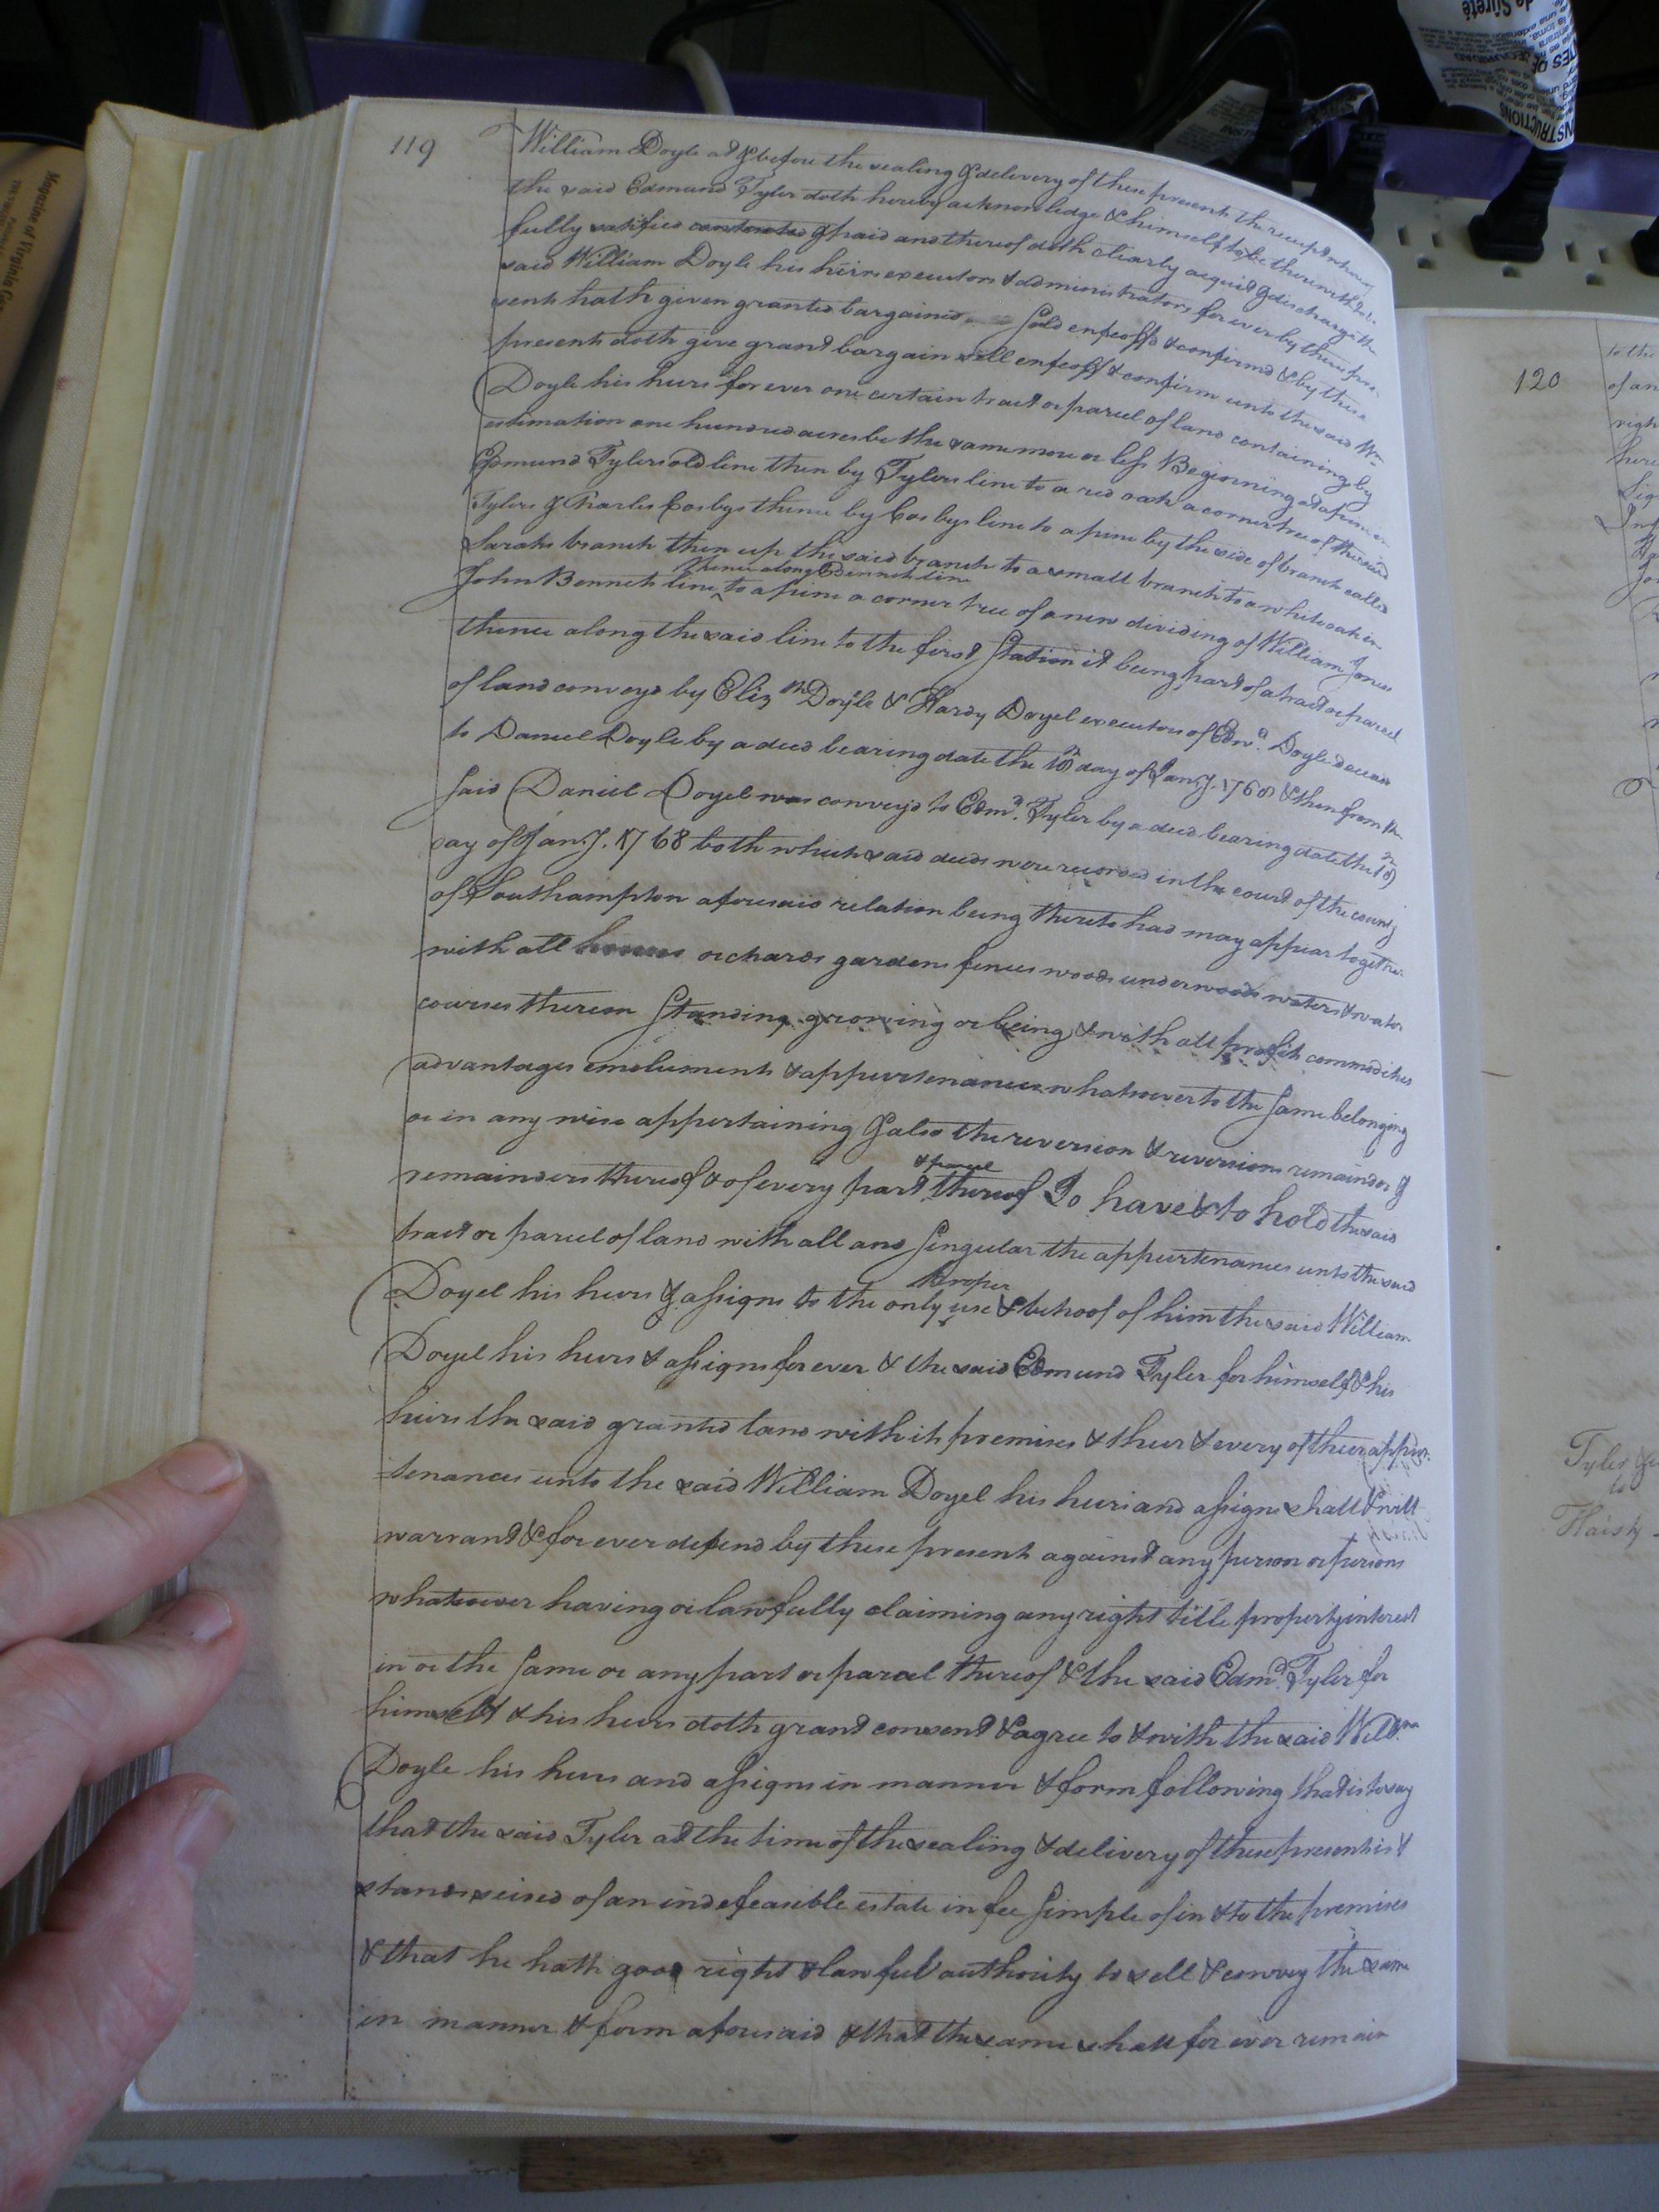 119
William Doyle at & before the sealing & delevery of these present the receipt whereof
the said Edmund Tyler doth hereby acknowledge & himself to be therewith
fully satisfied contented & paid and thereof doth clearly acquit & discharge the
said William Doyle his heirs executors & administrators for ever by these pre
sents hath given granted bargained sold enfeoff'd & confirmd & by these
presents doth give grant bargain sell enfeoff & confirm unto the said Wm
Doyle his heirs for ever one certain tract or parcel of land containing by
estimation one hundred acres be the same more or less Beginning at a pine
Edmund Tylers old line then by Tylers line to a red oak a corner tree of the said
Tylers & Charles Cosbys thence by Cosbys line to a pine by the side of branch called
Sarahs branch then up the said branch to a small branch to a white oak in
thence along Bennets line
John Bennets line to a pine a corner tree of a new dividing of William Jones
thence along the said line to the first Station it being part of a tract or parcel
of land conveyd by Elizth Doyle & Hardy Doyel executors of Edwd. Doyle deceas
to Daniel Doyle by a deed bearing date the day of Jany. 1768 & then from the
said Daniel Doyel was conveyd to Edmd. Tyler by a deed bearing date the
day of Jany. 1768 both which said deeds were recorded in the court of the county
of Southampton aforesaid relation being thereto had may appear together
with all houses orchards gardens fences woods underwoods waters & water
courses thereon Standing growing or being & with all profits commodities
advantages emoluments & appurtenances whatsoever to the same belonging
or in any wise appertaining & also the reversion & reversions remainder &
& parcel
remainders thereof & of every part thereof To have & to hold the said
tract or parcel of land with all and Singular the appurtenances unto the said
proper
Doyel his heirs & assigns to the only use & behoof of him the said William
Doyel his heirs & assigns for ever & the said Edmund Tyler for himself & his
heirs the said granted land with its premises & their & every of their appur
tenances unto the said William Doyel his heirs and assigns shall & will
warrant & for ever defend by these present against any person or persons
whatsoever having or lawfully claiming any right title property interest
in or the same or any part or parcel thereof & the said Edmd. Tyler for
himself & his heirs doth grant consent & agree to & with the said Willm
Doyle his heirs and assigns in manner & form following that is to say
that the said Tyler at the time of the sealing & delivery of these presents is &
stands seised of an indefeasible estate in fee simple of in & to the premises
& that he hath good right & lawful authority to sell & convey the same
in manner & form aforesaid & that the same shall for ever remain
120
to the
of an
righ
heir
Sig
Tyler
to
Haisty
Magazine of Virginia
de Sûreté
INSTRUCTIONS